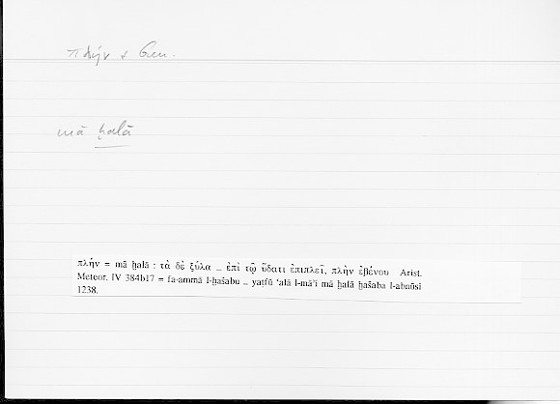 πλήν + Gen.
mā ḫalā
πλήν = mā ḫalā : τὰ δὲ ξύλα ... ἐπὶ τῷ ὕδατι ἐπιπλεῖ, πλὴν ἐβένου Arist.
Meteor. IV 384b17 = fa-ammā l-ḫašabu ... yaṭfū ʿalā l-māʾi mā ḫalā ḫašaba l-abnūsi
1238.